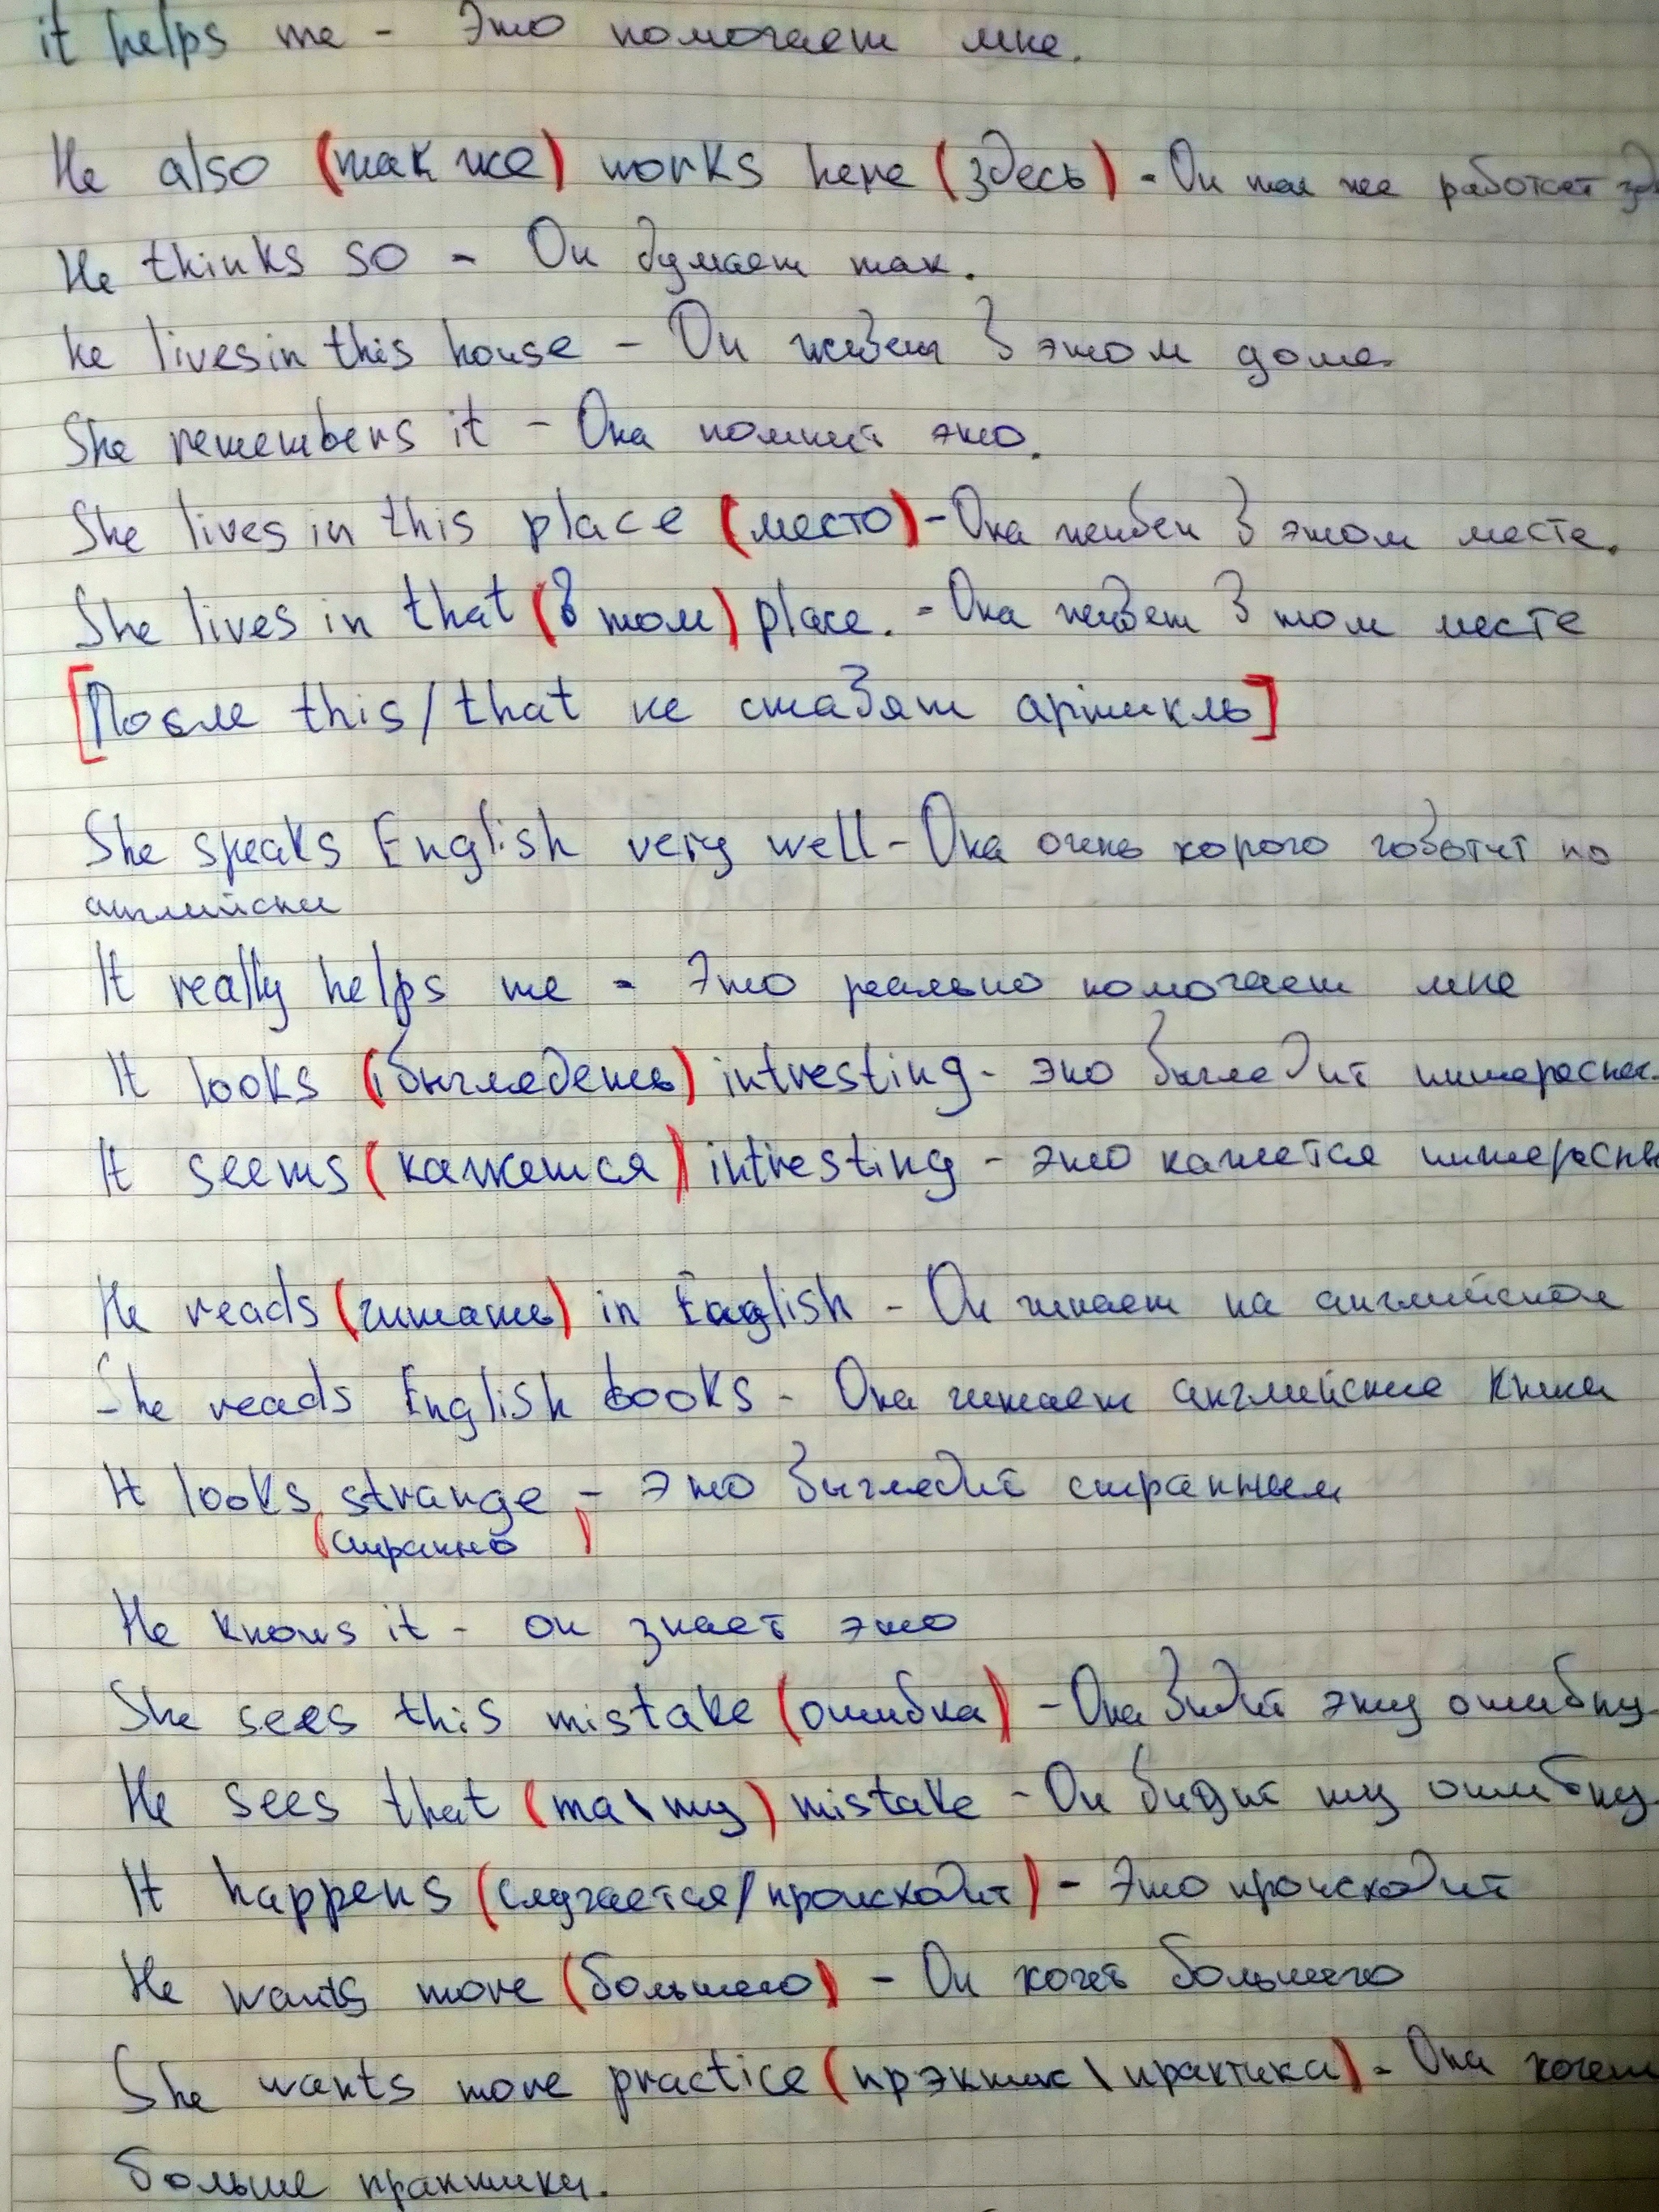 it helps me - Это помогает мне.
He also (так же) works here (здесь) - Он так же работает
He thinks so - Он думает так.
he lives in this house - Он живет в этом доме
She remembers it - Она помнит это.
She lives in this place (место) - Она живет в этом месте.
She lives in that (в том) place. - Она живет в том месте
[После this/that не ставят артикль]
She speaks English very well - Она очень хорого говотит по
английски
It really helps me - Это реально помогает мне
It looks (выглядеть) intresting - это выглядит
It seems (кажется) intresting - это кажется
He reads (читать) in English - Он читает на английском
She reads English books - Она читает английские книги
It looks strange - это выглядит странным
(странно)
He knows it - он знает это
She sees this mistake (ошибка) - Она видит эту ошибку
He sees that (та\ту) mistake - Он видит ту ошибку
It happens (случается/происходит) - Это происходит
He wants more (большего) - Он хочет большего
She wants more practice (прэктис \ практика) - Она хочет
больше практики.